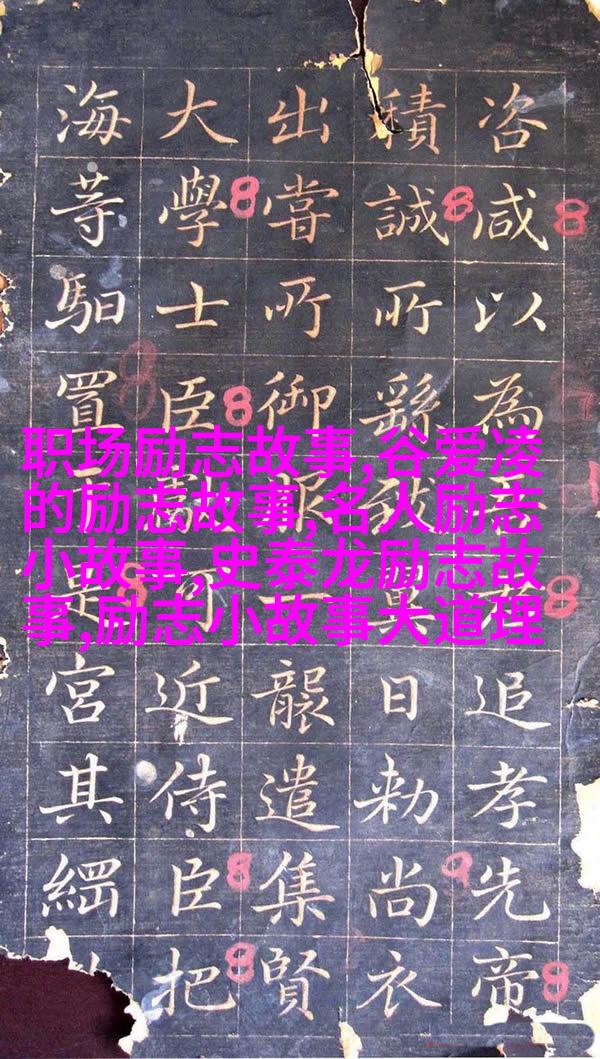 咨咸以為追孝先帝
積誠所繇致異日勅尚衣
出嘗所御服一襲遣集賢
大學士臣獻可近侍臣把
海等馹置是宮其綱
职场励志故事,谷爱凌
的励志故事,名人励志
小故事,史泰龙励志故
事,励志小故事大道理